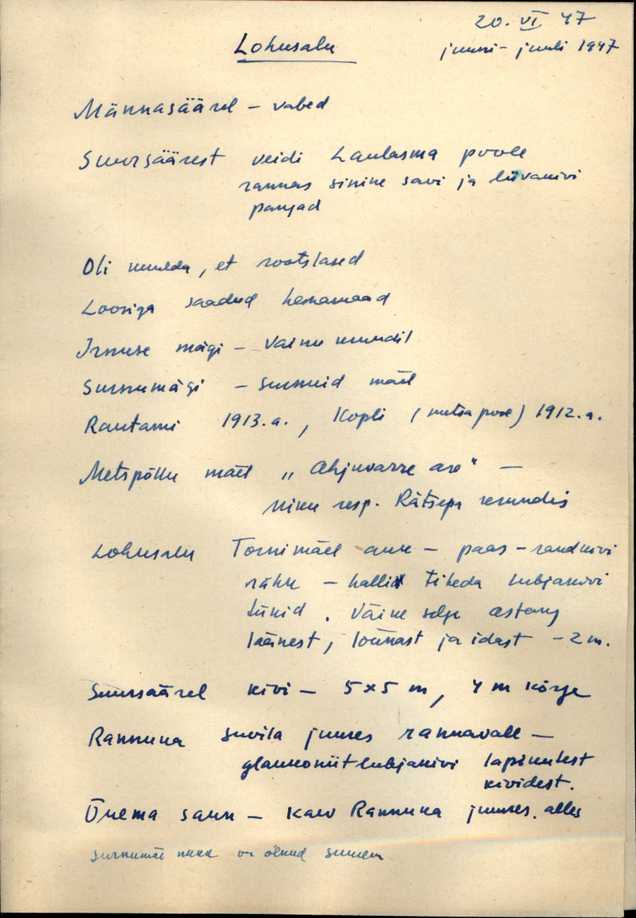 20. VI 47
Lohusalu juuni-juuli 1947
Männasäärel – vabed
Suursäärest veidi Laulasma poole
rannas sinine savi ja liivakivi
panjad
Oli kuulda, et rootslased
Loosiga saadud heinamaad
mägi – Vainu
Surnumägi – mäel
Rautami 1913.a., Kopli (metsa pool) 1912.a.
Metspõllu mäel „Ahjuvarre ase" –
Niku resp. Rätsepa
Lohusalu Tornimäel auk – paas – randkivi
rähu – hallid tiheda lubjakivi
tükid. Väike selge astang
läänest, lõunast ja idast – 2 m.
Suursäärel kivi – 5x5 m, 4 m kõrge
Rannuna suvila juures rannavall –
glaukoniitlubjakivi lapikutest
kividest.
saun – kaev Rannuna juures. alles
on olnud